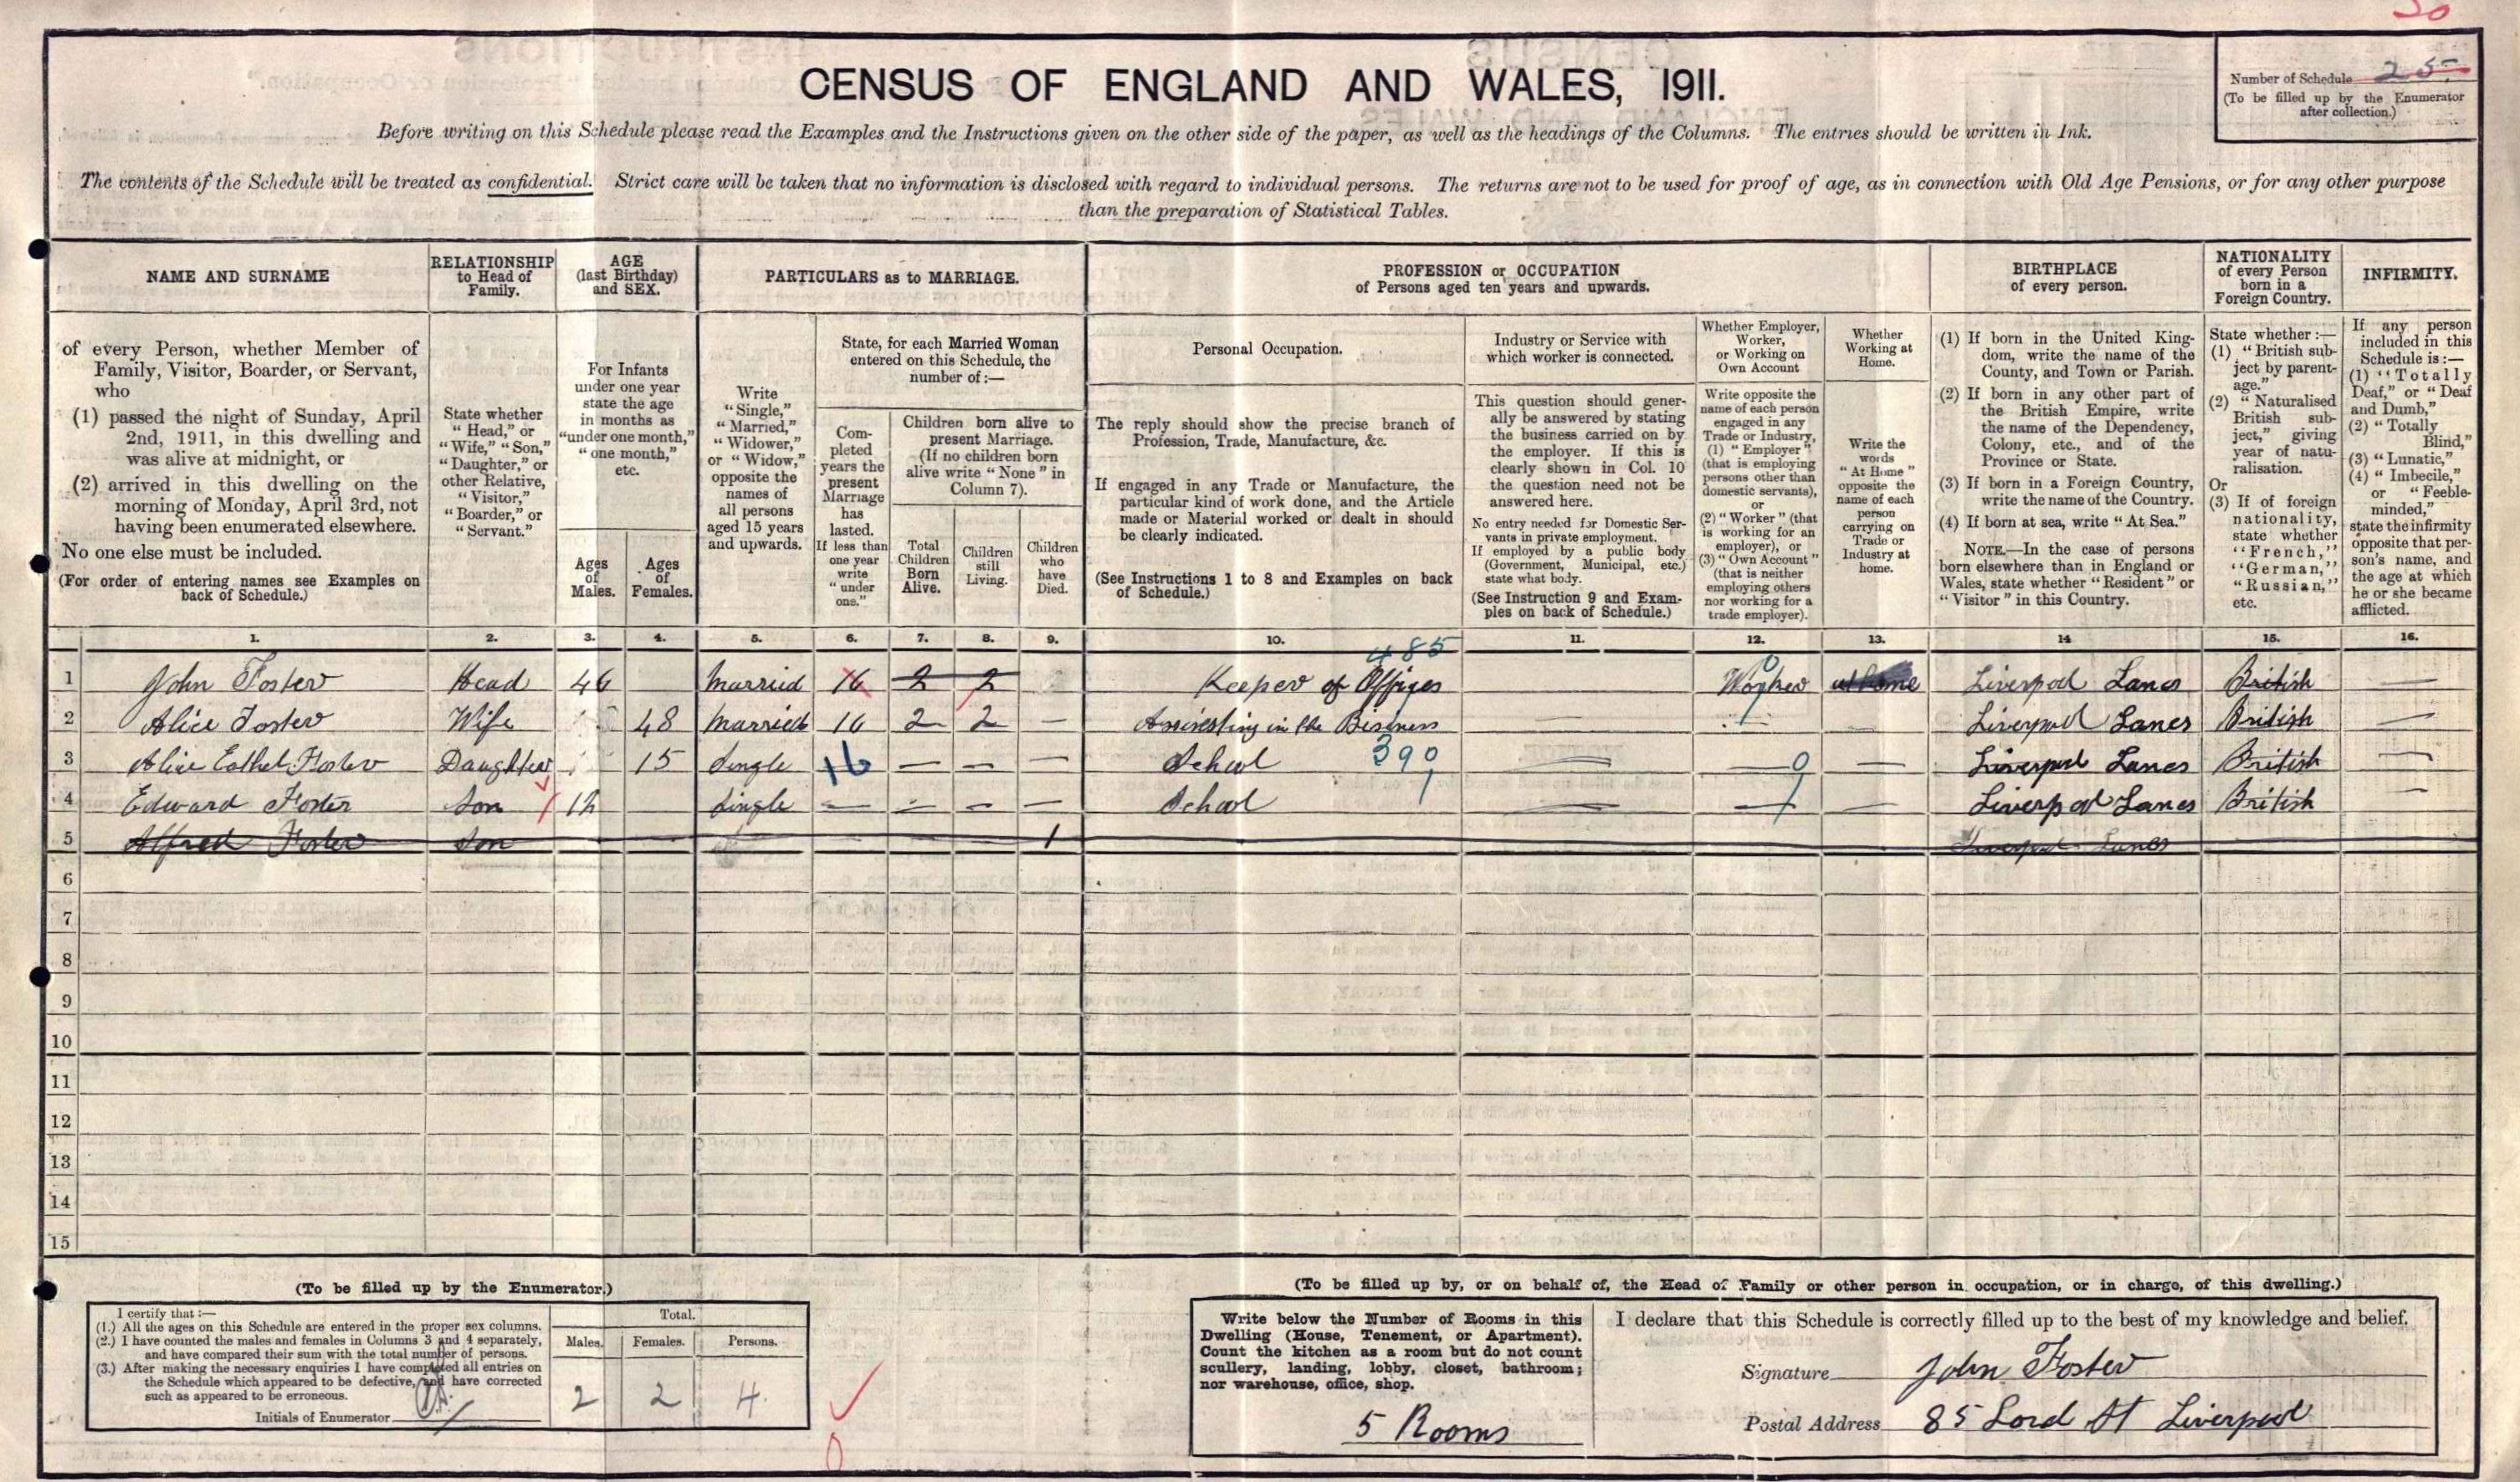 30
CENSUS OF ENGLAND AND WALES, 1911.
Number of Schedule 25
(To be filled up by the Enumerator
after collection.)
Before writing on this Schedule please read the Examples and the Instructions given on the other side of the paper, as well as the headings of the Columns. The entries should be written in Ink.
The contents of the Schedule will be treated as confidential. Strict care will be taken that no information is disclosed with regard to individual persons. The returns are not to be used for proof of age, as in connection with Old Age Pensions, or for any other purpose
than the preparation of Statistical Tables.
NAME AND SURNAME
of every Person, whether Member of
Family, Visitor, Boarder, or Servant,
who
(1) passed the night of Sunday, April
2nd, 1911, in this dwelling and
was alive at midnight, or
(2) arrived in this dwelling on the
morning of Monday, April 3rd, not
having been enumerated elsewhere.
No one else must be included.
(For order of entering names see Examples on
back of Schedule.)
RELATIONSHIP
to Head of
Family.
State whether
"Head," or
"Wife," "Son,"
"Daughter," or
other Relative,
"Visitor,"
"Boarder," or
"Servant."
AGE
(last Birthday)
and SEX.
For Infants
under one year
state the age
in months as
"under one month,"
"one month,"
etc.
Ages
of
Males.
Ages
of
Females.
PARTICULARS as to MARRIAGE.
Write
"Single,"
"Married,"
"Widower,"
or "Widow,"
opposite the
names of
all persons
aged 15 years
and upwards.
State, for each Married Woman
entered on this Schedule, the
number of:—
Com-
pleted
years the
present
Marriage
has
lasted.
If less than
one year
write
"under
one."
Children born alive to
present Marriage.
(If no children born
alive write "None" in
Column 7).
Total
Children
Born
Alive.
Children
still
Living.
Children
who
have
Died.
PROFESSION or OCCUPATION
of Persons aged ten years and upwards.
Personal Occupation.
The reply should show the precise branch of
Profession, Trade, Manufacture, &c.
If engaged in any Trade or Manufacture, the
particular kind of work done, and the Article
made or Material worked or dealt in should
be clearly indicated.
(See Instructions 1 to 8 and Examples on back
of Schedule.)
Industry or Service with
which worker is connected.
This question should gener-
ally be answered by stating
the business carried on by
the employer. If this is
clearly shown in Col. 10
the question need not be
answered here.
No entry needed for Domestic Ser-
vants in private employment.
If employed by a public body
(Government, Municipal, etc.)
state what body.
(See Instruction 9 and Exam-
ples on back of Schedule.)
Whether Employer,
Worker,
or Working on
Own Account
Write opposite the
name of each person
engaged in any
Trade or Industry,
(1) "Employer"
(that is employing
persons other than
domestic servants),
or
(2) "Worker" (that
is working for an
employer), or
(3) "Own Account"
(that is neither
employing others
nor working for a
trade employer).
Whether
Working at
Home.
Write the
words
"At Home"
opposite the
name of each
person
carrying on
Trade or
Industry at
home.
BIRTHPLACE
of every person.
(1) If born in the United King-
dom, write the name of the
County, and Town or Parish.
(2) If born in any other part of
the British Empire, write
the name of the Dependency,
Colony, etc., and of the
Province or State.
(3) If born in a Foreign Country,
write the name of the Country.
(4) If born at sea, write "At Sea."
NOTE.—In the case of persons
born elsewhere than in England or
Wales, state whether "Resident" or
"Visitor" in this Country.
NATIONALITY
of every Person
born in a
Foreign Country.
State whether:—
(1) "British sub-
ject by parent-
age."
(2) "Naturalised
British sub-
ject," giving
year of natu-
ralisation.
Or
(3) If of foreign
nationality,
state whether
"French,"
"German,"
"Russian,"
etc.
INFIRMITY.
If any person
included in this
Schedule is:—
(1) "Totally
Deaf," or "Deaf
and Dumb,"
(2) "Totally
Blind,"
(3) "Lunatic,"
(4) "Imbecile,"
or "Feeble-
minded,"
state the infirmity
opposite that per-
son's name, and
the age at which
he or she became
afflicted.
1. 2. 3. 4. 5. 6. 7. 8. 9. 10. 11. 12. 13. 14 15. 16.
485
1 John Foster Head 46 Married 16 2 2 Keeper of Offices — Worker 0 at home Liverpool Lancs British —
2 Alice Foster Wife 48 Married 16 2 2 — Assisesting in the Bisness — — Liverpool Lancs British —
3 Alice Eathel Foster Daughter 15 Single 16 — — — School 390 — — 0 — Liverpool Lancs British —
4 Edward Foster Son 12 Single — — — — School — — — Liverpool Lancs British —
5 Alfred Foster Son 1 Liverpool Lancs
6
7
8
9
10
11
12
13
14
15
(To be filled up by the Enumerator.)
I certify that:—
(1.) All the ages on this Schedule are entered in the proper sex columns.
(2.) I have counted the males and females in Columns 3 and 4 separately,
and have compared their sum with the total number of persons.
(3.) After making the necessary enquiries I have completed all entries on
the Schedule which appeared to be defective, and have corrected
such as appeared to be erroneous.
Initials of Enumerator
Total.
Males. Females. Persons.
2 2 4
(To be filled up by, or on behalf of, the Head of Family or other person in occupation, or in charge, of this dwelling.)
Write below the Number of Rooms in this
Dwelling (House, Tenement, or Apartment).
Count the kitchen as a room but do not count
scullery, landing, lobby, closet, bathroom;
nor warehouse, office, shop.
5 Rooms
I declare that this Schedule is correctly filled up to the best of my knowledge and belief.
Signature John Foster
Postal Address 85 Lord St Liverpool